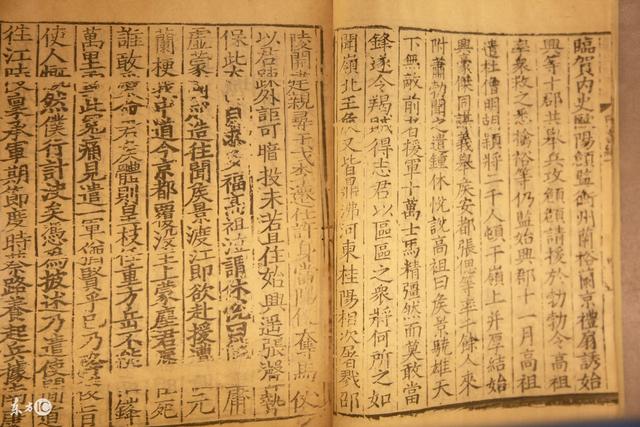 臨賀內史歐陽頠監衡州蘭裕蘭京禮扇誘始
興等十郡共舉兵攻頠頠請援於勃勃令高祖
率衆救之悉擒裕等仍監始興郡十一月高祖
遣杜僧明胡穎將二千人頓于嶺上并厚結始
興豪傑同謀義舉侯安都張偲等率千餘人來
附蕭勃聞之遣鍾休悅說高祖曰侯景驍雄天
下無敵前者援軍十萬士馬精彊然而莫敢當
鋒遂令羯賊得志君以區區之衆將何所之如
聞嶺北王侯又皆鼎沸河東桂陽相次屠戮邵
陵開建親尋干戈李遷仕許身當陽便奪馬仗
以君疎外詎可暗投未若且住始興遥張聲勢
保此太山自求多福高祖泣謂休悅曰僕本庸
虛蒙國成造往聞侯景渡江即欲赴援遭值元
蘭梗我中道今京都覆沒主上蒙塵君辱臣死
誰敢愛命君侯體則皇枝任重方岳不能摧鋒
萬里雪此冤痛見遣一軍猶賢乎已乃降後旨
使人慨然僕行計決矣憑爲披述乃遣使間道
往江陵稟承軍期節度時蔡路養起兵據南康
東方IC